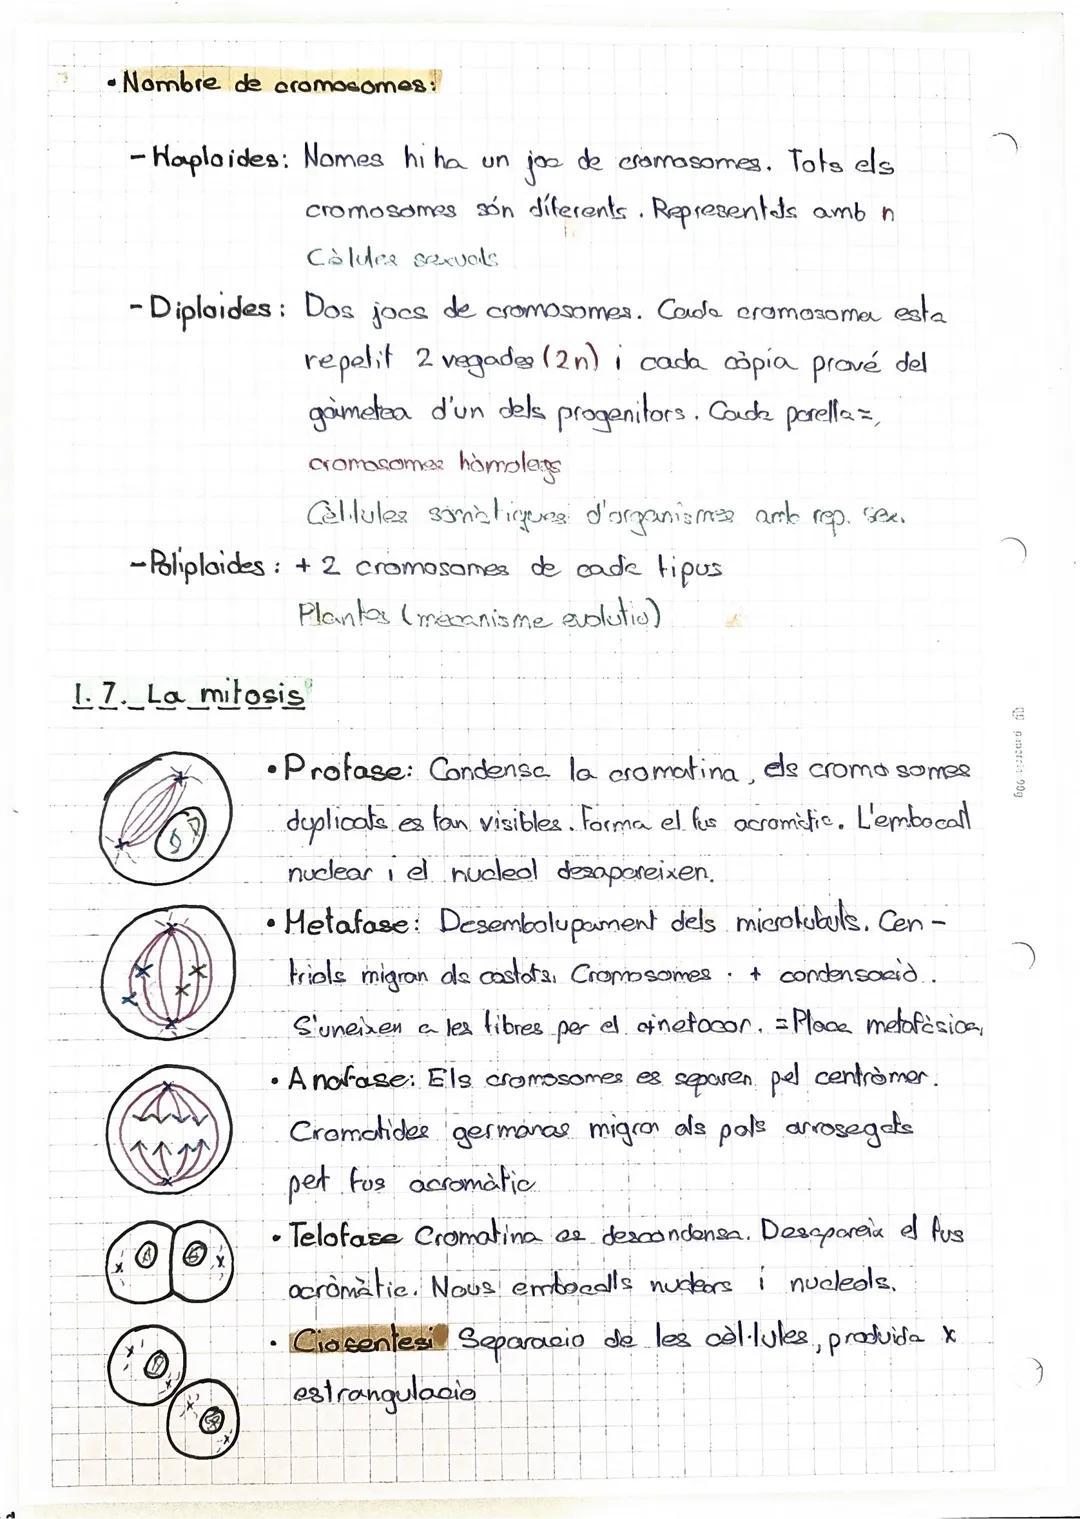 • Nombre de cromosomes:
- Haploides: Nomes hi ha un joc de cromosomes. Tots els
cromosomes són diferents. Representats amb n
Cèlules sexuals
- Diploides: Dos jocs de cromosomes. Cada cromosoma esta
repetit 2 vegades (2n) i cada còpia prové del
gàmeta d'un dels progenitors. Cada parella =,
cromosomes homòlegs
Cèl·lules somàtiques d'organismes amb rep. sex.
- Poliploides: + 2 cromosomes de cada tipus
Plantes (mecanisme evolutiu)
1.7. La mitosis
• Profase: Condensa la cromatina, els cromosomes
duplicats es fan visibles. Forma el fus acromàtic. L'embocall
nuclear i el nucleol desapareixen.
• Metafase: Desembolupament dels microtubuls. Cen-
triols migran als costats. Cromosomes + condensació.
S'uneixen a les fibres per el cinetocor. = Placa metafàsica,
• Anafase: Els cromosomes es separen pel centròmer.
Cromatides germanas migran als pols arrosegats
pel fus acromàtic
• Telofase Cromatina es descondensa. Desapareix el fus
acròmàtic. Nous embocalls nuclears i nucleols.
• Ciocentesi Separacio de les cèl·lules, produida x
estrangulacio
90g